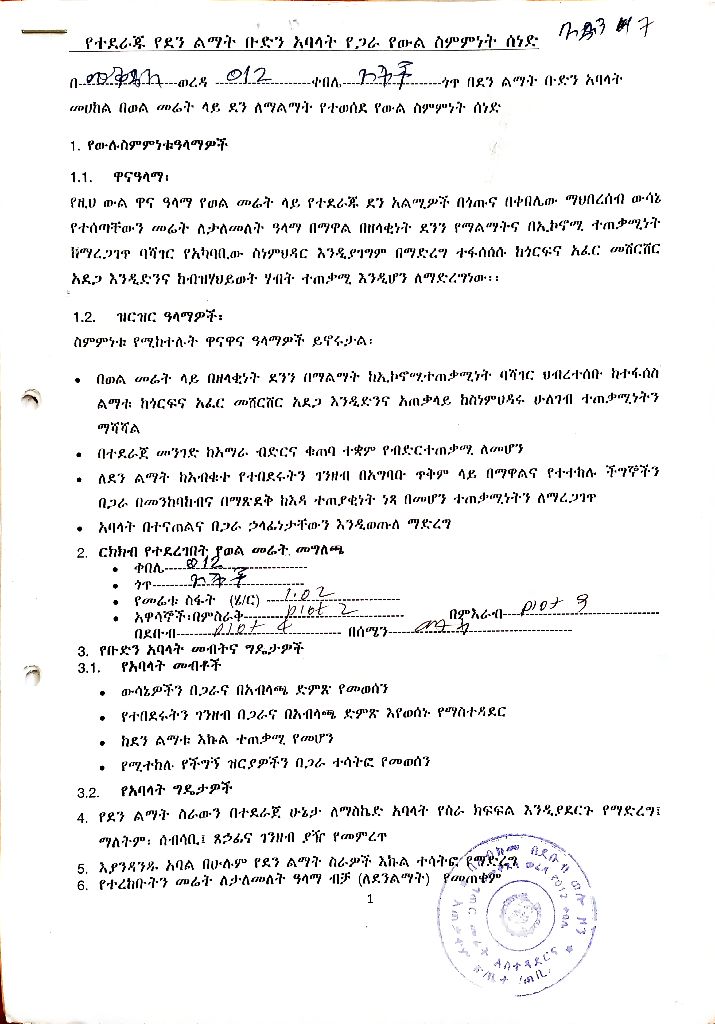 የተደራጁ የደን ልማት ቡድን አባላት የጋራ የውል ስምምነት ሰነድ
በ ወረዳ 012 ቀበሌ ጎጥ በደን ልማት ቡድን አባላት
መሀከል በወል መሬት ላይ ደን ለማልማት የተወሰደ የውል ስምምነት ሰነድ
1. የውሉስምምነቱዓላማዎች
1.1. ዋናዓላማ፡
የዚህ ውል ዋና ዓላማ የወል መሬት ላይ የተደራጁ ደን አልሚዎች በጎጡና በቀበሌው ማህበረሰብ ውሳኔ
የተሰጣቸውን መሬት ለታለመለት ዓላማ በማዋል በዘላቂነት ደንን የማልማትና በኢኮኖሚ ተጠቃሚነት
ከማረጋገጥ ባሻገር የአካባቢው ስነምህዳር እንዲያገግም በማድረግ ተፋሰሰሱ ከጎርፍና አፈር መሸርሸር
አደጋ እንዲድንና ከብዝሃህይወት ሃብት ተጠቃሚ እንዲሆን ለማድረግነው፡፡
1.2. ዝርዝር ዓላማዎች፡
ስምምነቱ የሚከተሉት ዋናዋና ዓላማዎች ይኖሩታል፡
• በወል መሬት ላይ በዘላቂነት ደንን በማልማት ከኢኮኖሚተጠቃሚነት ባሻገር ህብረተሰቡ ከተፋሰስ
ልማቱ ከጎርፍና አፈር መሸርሸር አደጋ እንዲድንና አጠቃላይ ከስነምህዳሩ ሁለገብ ተጠቃሚነትን
ማሻሻል
• በተደራጀ መንገድ ከአማራ ብድርና ቁጠባ ተቋም የብድርተጠቃሚ ለመሆን
• ለደን ልማት ከአብቁተ የተበደሩትን ገንዘብ በአግባቡ ጥቅም ላይ በማዋልና የተተከሉ ችግኞችን
በጋራ በመንከባከብና በማጽደቅ ከእዳ ተጠያቂነት ነጻ በመሆን ተጠቃሚነትን ለማረጋገጥ
• አባላት በተናጠልና በጋራ ኃላፊነታቸውን እንዲወጡለ ማድረግ
2. ርክክብ የተደረገበት የወል መሬት መግለጫ
• ቀበሌ 012
• ጎጥ
• የመሬቱ ስፋት (ሄ/ር) 1.02
• አዋሳኞች፡በምስራቅ plot 2 በምእራብ plot 3
በደቡብ plot 4 በሰሜን
3. የቡድን አባላት መብትና ግዴታዎች
3.1. የአባላት መብቶች
• ውሳኔዎችን በጋራና በአብላጫ ድምጽ የመወሰን
• የተበደሩትን ገንዘብ በጋራና በአብላጫ ድምጽ እየወሰኑ የማስተዳደር
• ከደን ልማቱ እኩል ተጠቃሚ የመሆን
• የሚተከሉ የችግኝ ዝርያዎችን በጋራ ተሳትፎ የመወሰን
3.2. የአባላት ግዴታዎች
4. የደን ልማት ስራውን በተደራጀ ሁኔታ ለማስኬድ አባላት የስራ ክፍፍል እንዲያደርጉ የማድረግ፤
ማለትም፡ ሰብሳቢ፤ ጸኃፊና ገንዘብ ያዥ የመምረጥ
5. እያንዳንዱ አባል በሁሉም የደን ልማት ስራዎች እኩል ተሳትፎ የማድረግ
6. የተረከቡትን መሬት ለታለመለት ዓላማ ብቻ (ለደንልማት) የመጠቀም
1